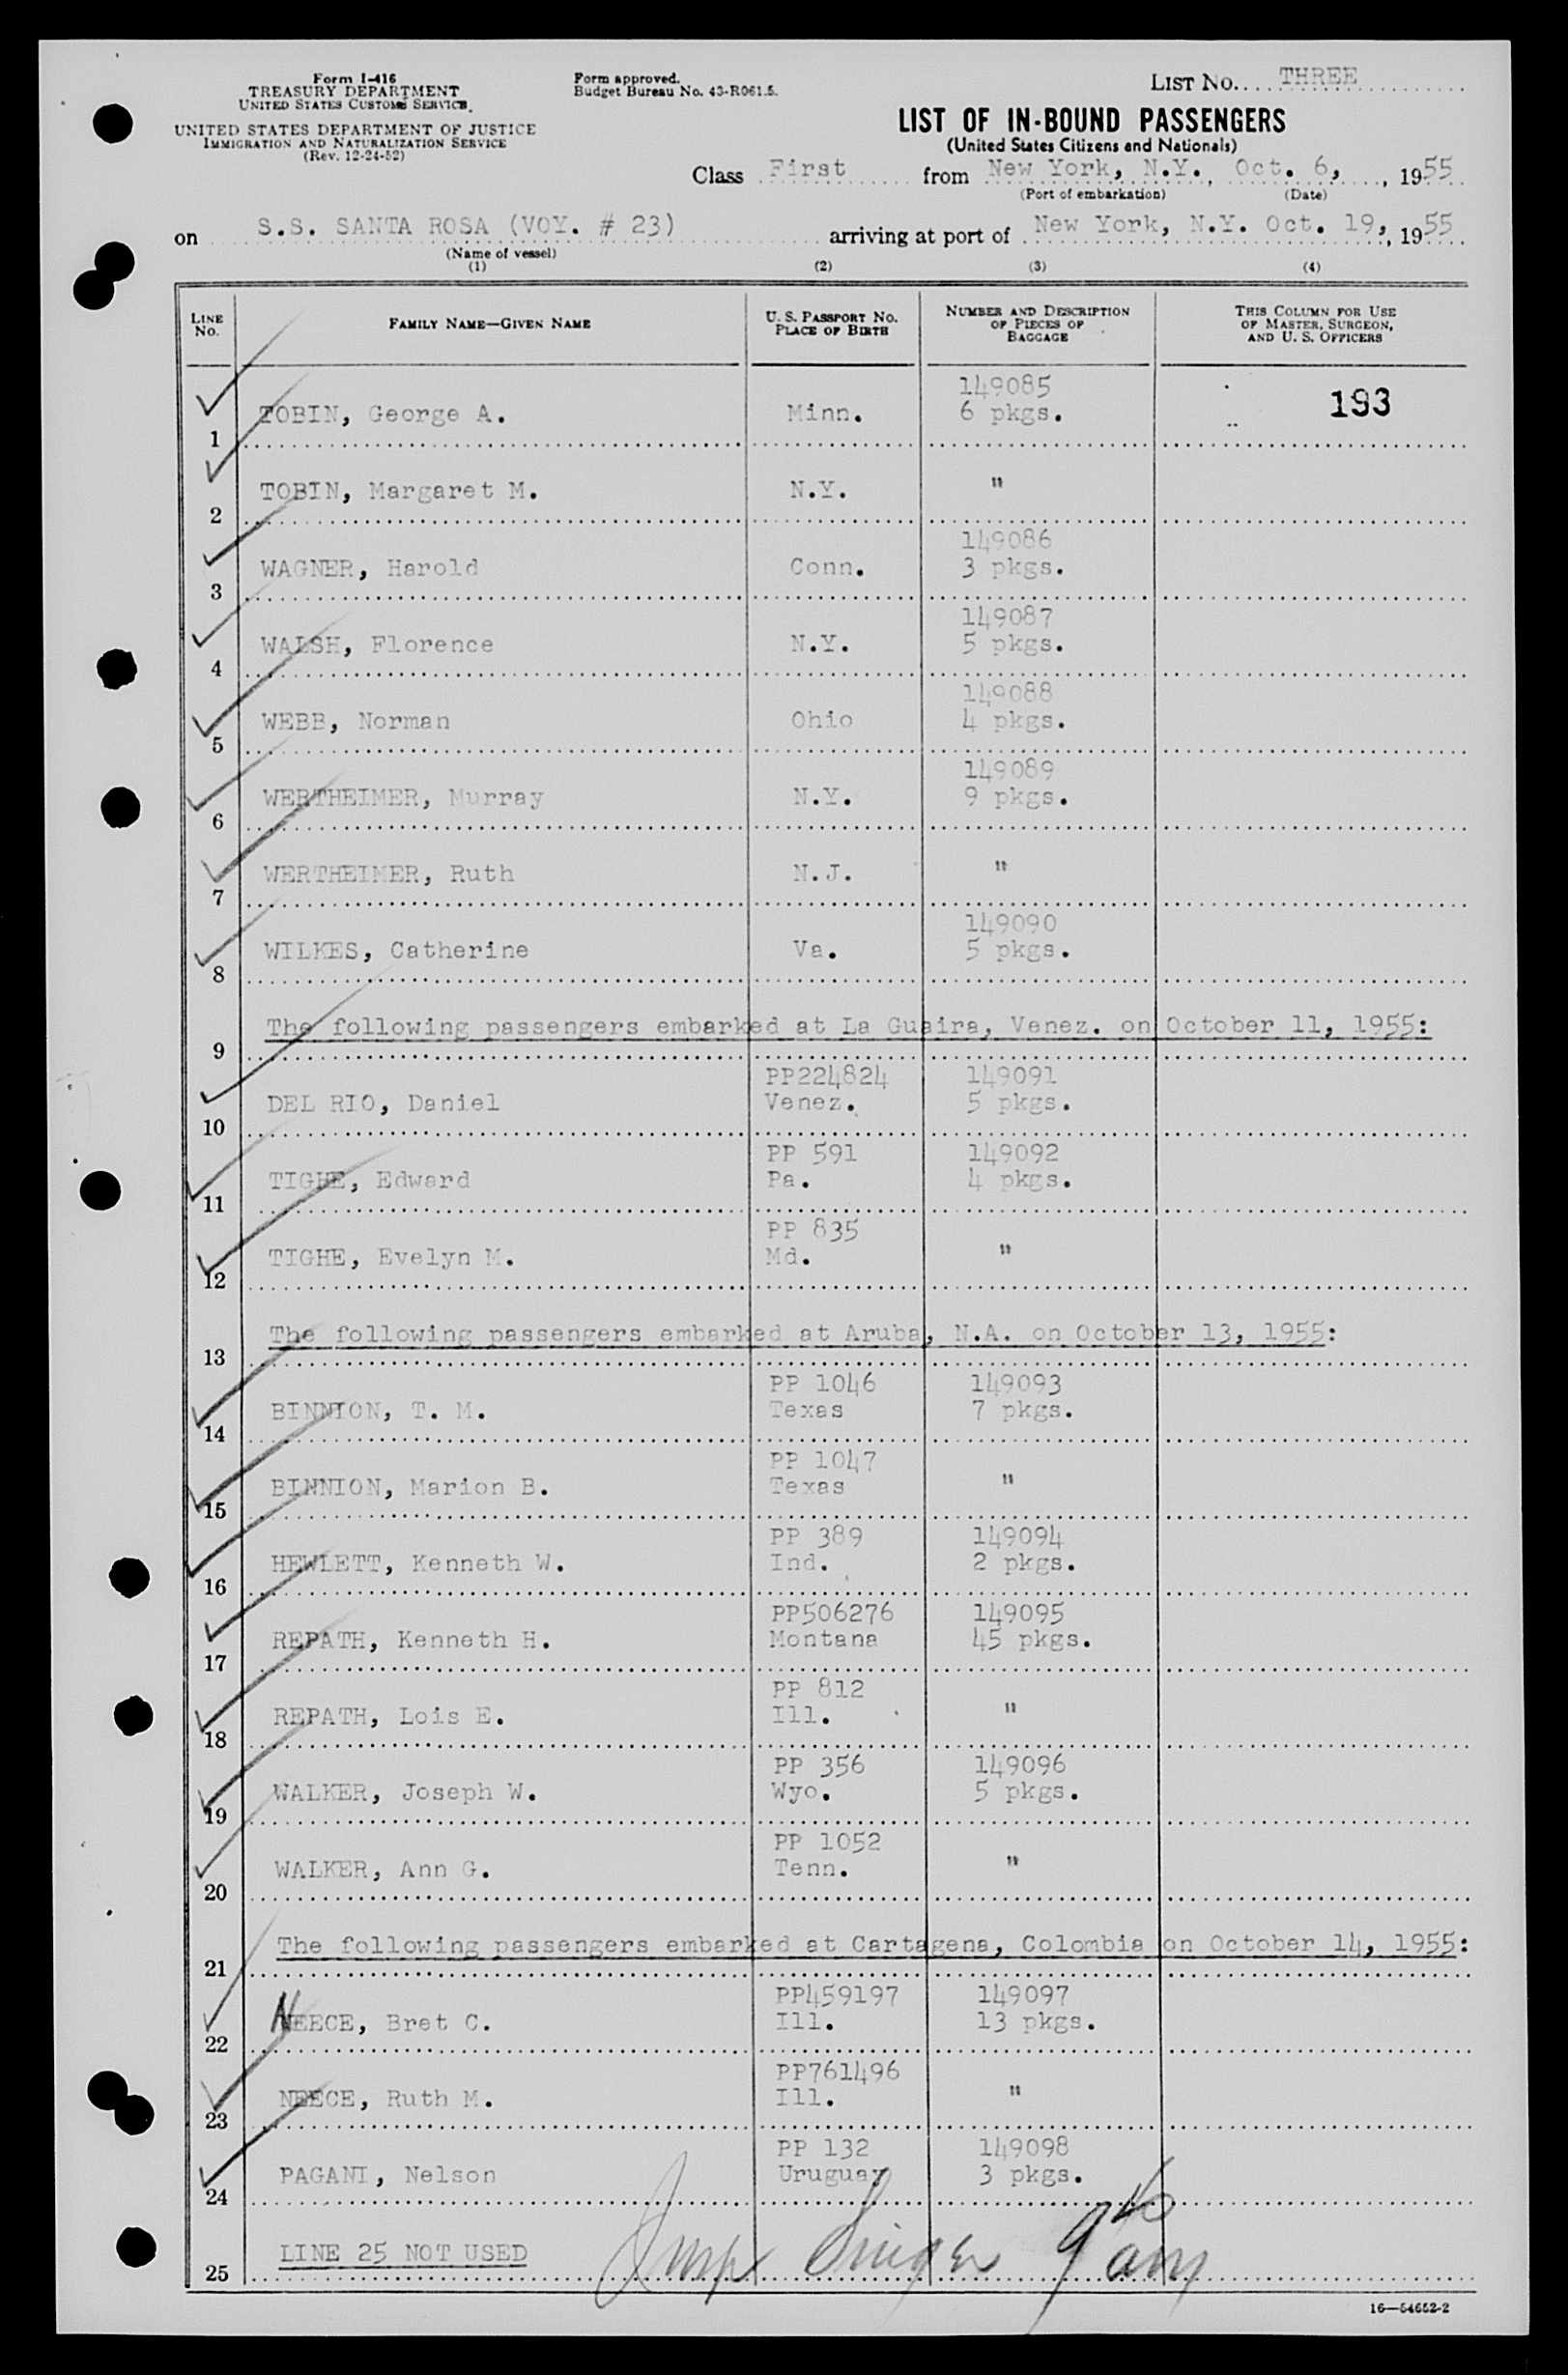 Form I-416
TREASURY DEPARTMENT
UNITED STATES CUSTOMS SERVICE
UNITED STATES DEPARTMENT OF JUSTICE
IMMIGRATION AND NATURALIZATION SERVICE
(Rev. 12-24-52)
Form approved.
Budget Bureau No. 43-R061.5.
LIST NO. THREE
LIST OF IN-BOUND PASSENGERS
(United States Citizens and Nationals)
Class First from New York, N.Y., Oct. 6, , 1955
(Port of embarkation) (Date)
on S.S. SANTA ROSA (VOY. # 23) arriving at port of New York, N.Y. Oct. 19, , 1955
(Name of vessel)
(1) (2) (3) (4)
LINE NO. FAMILY NAME—GIVEN NAME U. S. PASSPORT NO. PLACE OF BIRTH NUMBER AND DESCRIPTION OF PIECES OF BAGGAGE THIS COLUMN FOR USE OF MASTER, SURGEON, AND U. S. OFFICERS
149085
1 TOBIN, George A. Minn. 6 pkgs. 193
2 TOBIN, Margaret M. N.Y. "
149086
3 WAGNER, Harold Conn. 3 pkgs.
149087
4 WALSH, Florence N.Y. 5 pkgs.
149088
5 WEBB, Norman Ohio 4 pkgs.
149089
6 WERTHEIMER, Murray N.Y. 9 pkgs.
7 WERTHEIMER, Ruth N.J. "
149090
8 WILKES, Catherine Va. 5 pkgs.
9 The following passengers embarked at La Guaira, Venez. on October 11, 1955:
PP224824 149091
10 DEL RIO, Daniel Venez. 5 pkgs.
PP 591 149092
11 TIGHE, Edward Pa. 4 pkgs.
PP 835
12 TIGHE, Evelyn M. Md. "
13 The following passengers embarked at Aruba, N.A. on October 13, 1955:
PP 1046 149093
14 BINNION, T. M. Texas 7 pkgs.
PP 1047
15 BINNION, Marion B. Texas "
PP 389 149094
16 HEWLETT, Kenneth W. Ind. 2 pkgs.
PP506276 149095
17 REPATH, Kenneth H. Montana 45 pkgs.
PP 812
18 REPATH, Lois E. Ill. "
PP 356 149096
19 WALKER, Joseph W. Wyo. 5 pkgs.
PP 1052
20 WALKER, Ann G. Tenn. "
21 The following passengers embarked at Cartagena, Colombia on October 14, 1955:
PP459197 149097
22 NEECE, Bret C. Ill. 13 pkgs.
PP761496
23 NEECE, Ruth M. Ill. "
PP 132 149098
24 PAGANI, Nelson Uruguay 3 pkgs.
25 LINE 25 NOT USED
16—64652-2